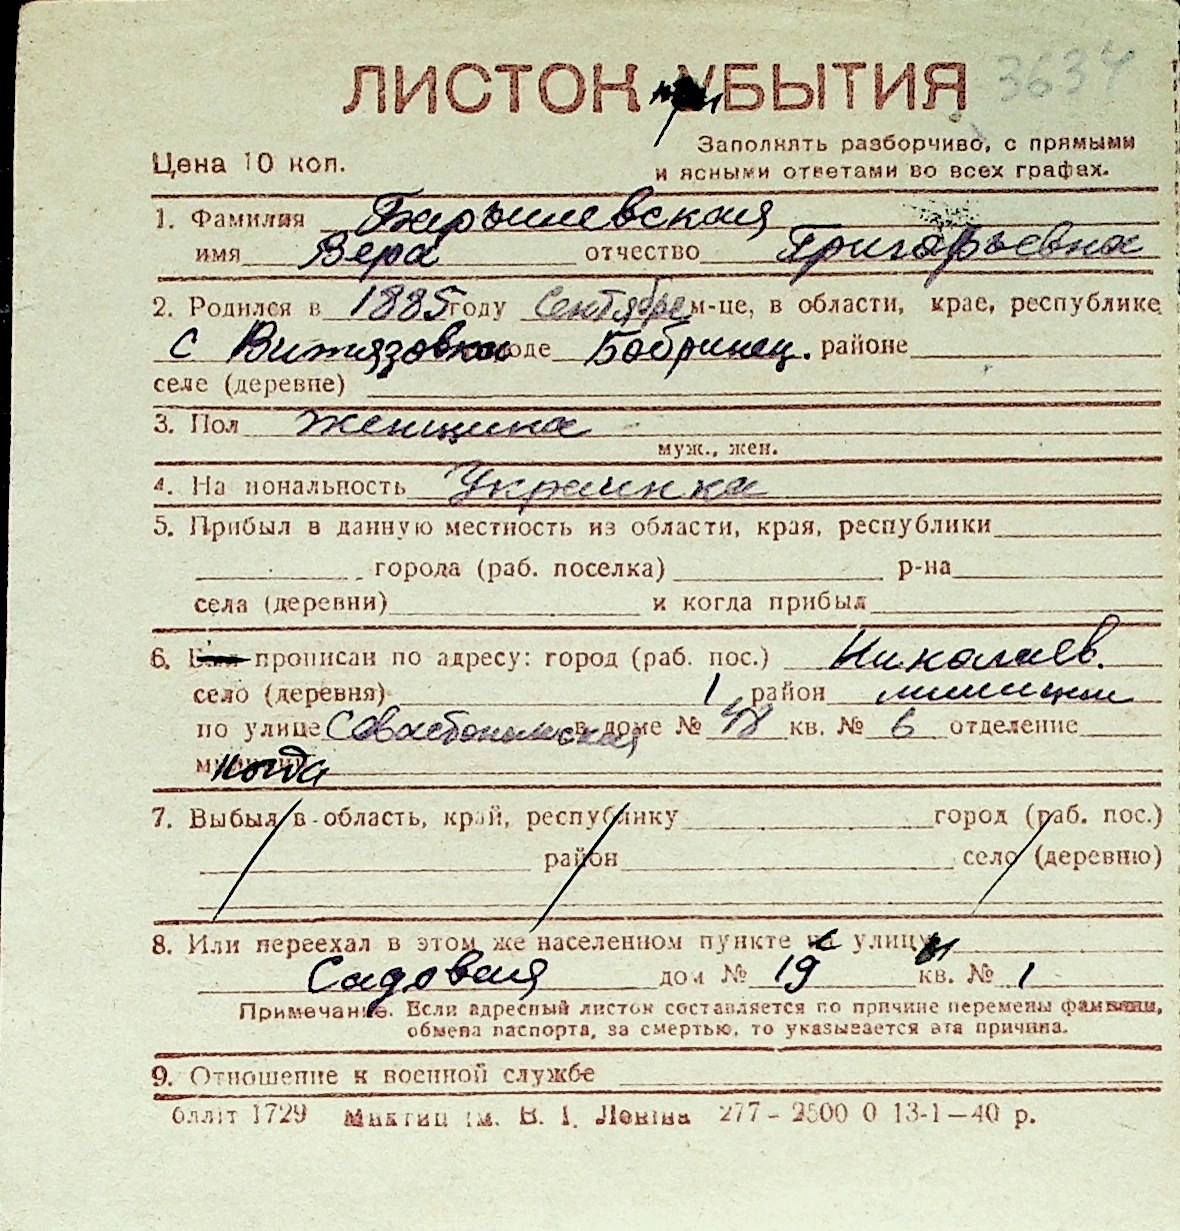 ЛИСТОК УБЫТИЯ 3634
Цена 10 коп.
Заполнять разборчиво, с прямыми
и ясными ответами во всех графах.
1. Фамилия
имя Вера отчество Григорьевна
2. Родился в 1885 году Сентябре м-це, в области, крае, республике
с Витязовка Бобринец. районе
селе (деревне)
3. Пол женщина
муж., жен.
4. На иональность Украинка
5. Прибыл в данную местность из области, края, республики
города (раб. поселка) р-на
села (деревни) и когда прибыл
6. прописан по адресу: город (раб. пос.) Николаев.
село (деревня) 1 район милиции
по улице Севастопольская в доме № 48 кв. № 6 отделение
когда
7. Выбыл в область, край, республику город (раб. пос.)
район село (деревню)
8. Или переехал в этом же населенном пункте с улицы
Садовая дом № 19 кв. № 1
Примечание. Если адресный листок составляется по причине перемены фамилии,
обмена паспорта, за смертью, то указывается эта причина.
9. Отношение к военной службе
блліт 1729 В. І. Леніна 277-2500 0 13-1-40 р.